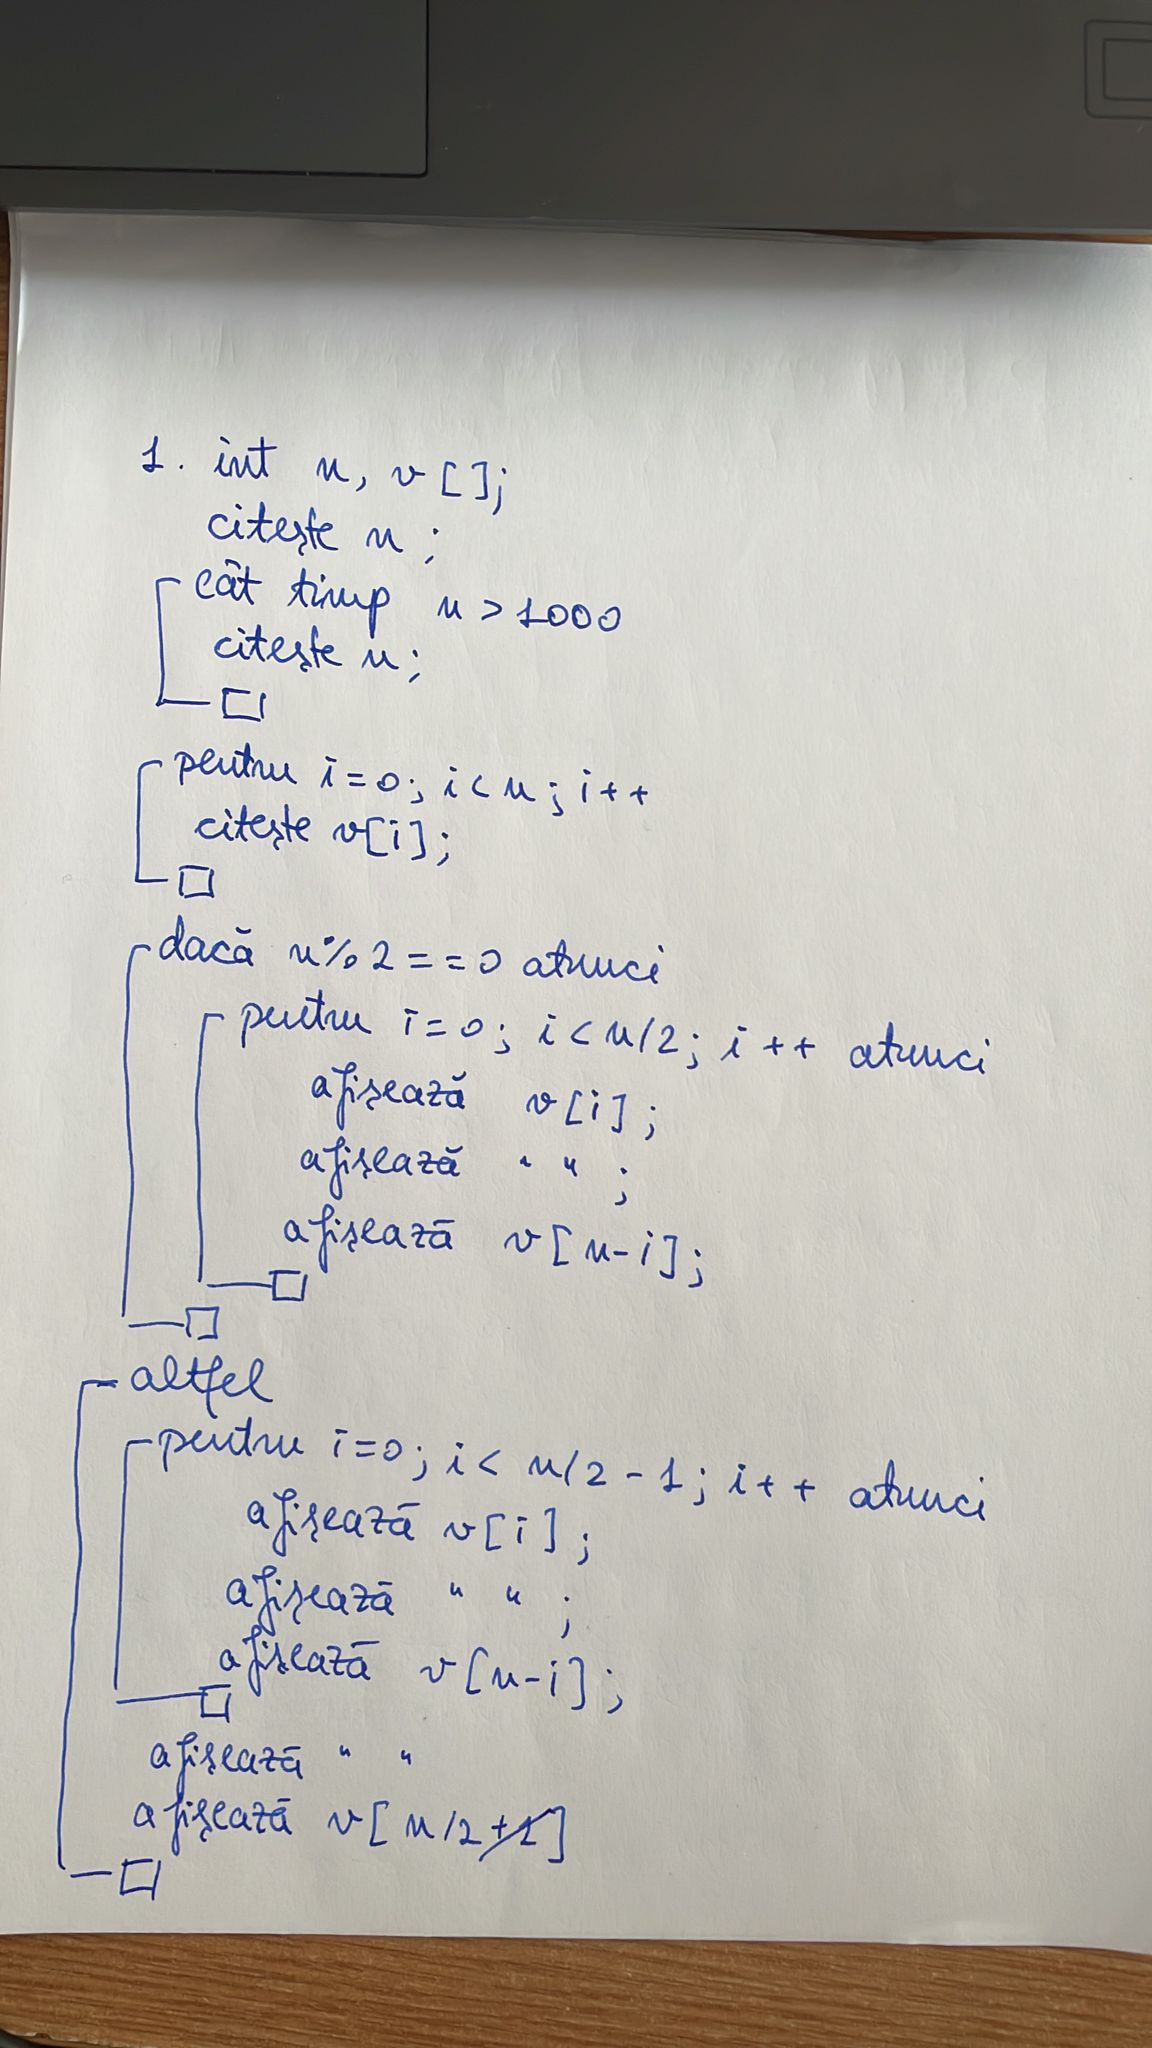 1. int n, v[];
citește n;
cât timp n > 1000
citește n;
pentru i=0; i<n; i++
citește v[i];
dacă n%2==0 atunci
pentru i=0; i<n/2; i++ atunci
afișează v[i];
afișează " ";
afișează v[n-i];
altfel
pentru i=0; i< n/2-1; i++ atunci
afișează v[i];
afișează " ";
afișează v[n-i];
afișează " "
afișează v[n/2]